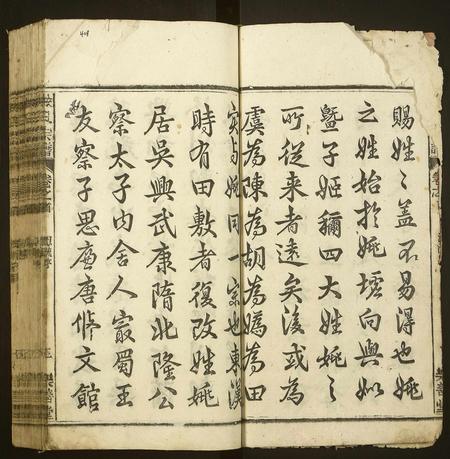 賜姓〻蓋不易得也姚
之姓始於姚墟向與姒
暨子姬稱四大姓姚之
所從来者遠矣後或為
虞為陳為胡為媯為田
實與媯同一宗也東漢
時有田敷者復改姓姚
居吳興武康隋北隆公
察太子内舍人最蜀王
友察子思廉唐修文館
樂善堂